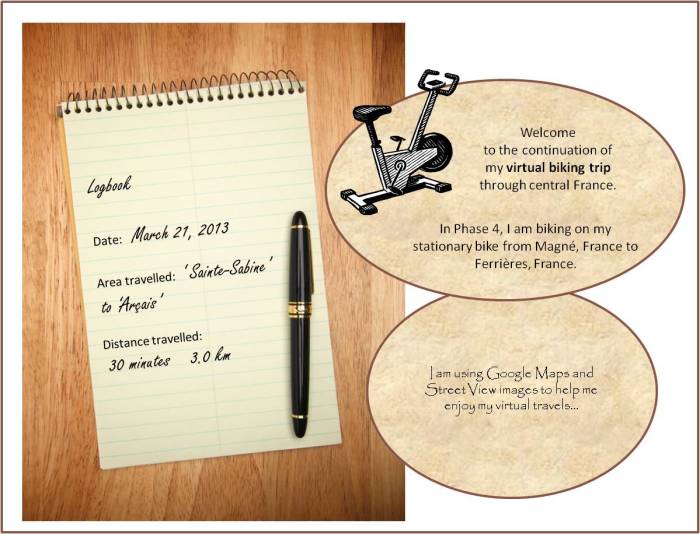 Logbook
Date: March 21, 2013
Area travelled: 'Sainte-Sabine'
to 'Arçais'
Distance travelled:
30 minutes 3.0 km
Welcome
to the continuation of
my virtual biking trip
through central France.
In Phase 4, I am biking on my
stationary bike from Magné, France to
Ferrières, France.
I am using Google Maps and
Street View images to help me
enjoy my virtual travels...